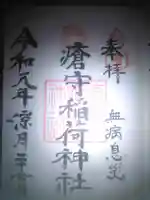 奉拝 無病息災
瘡守稲荷神社
令和元年涼月二十